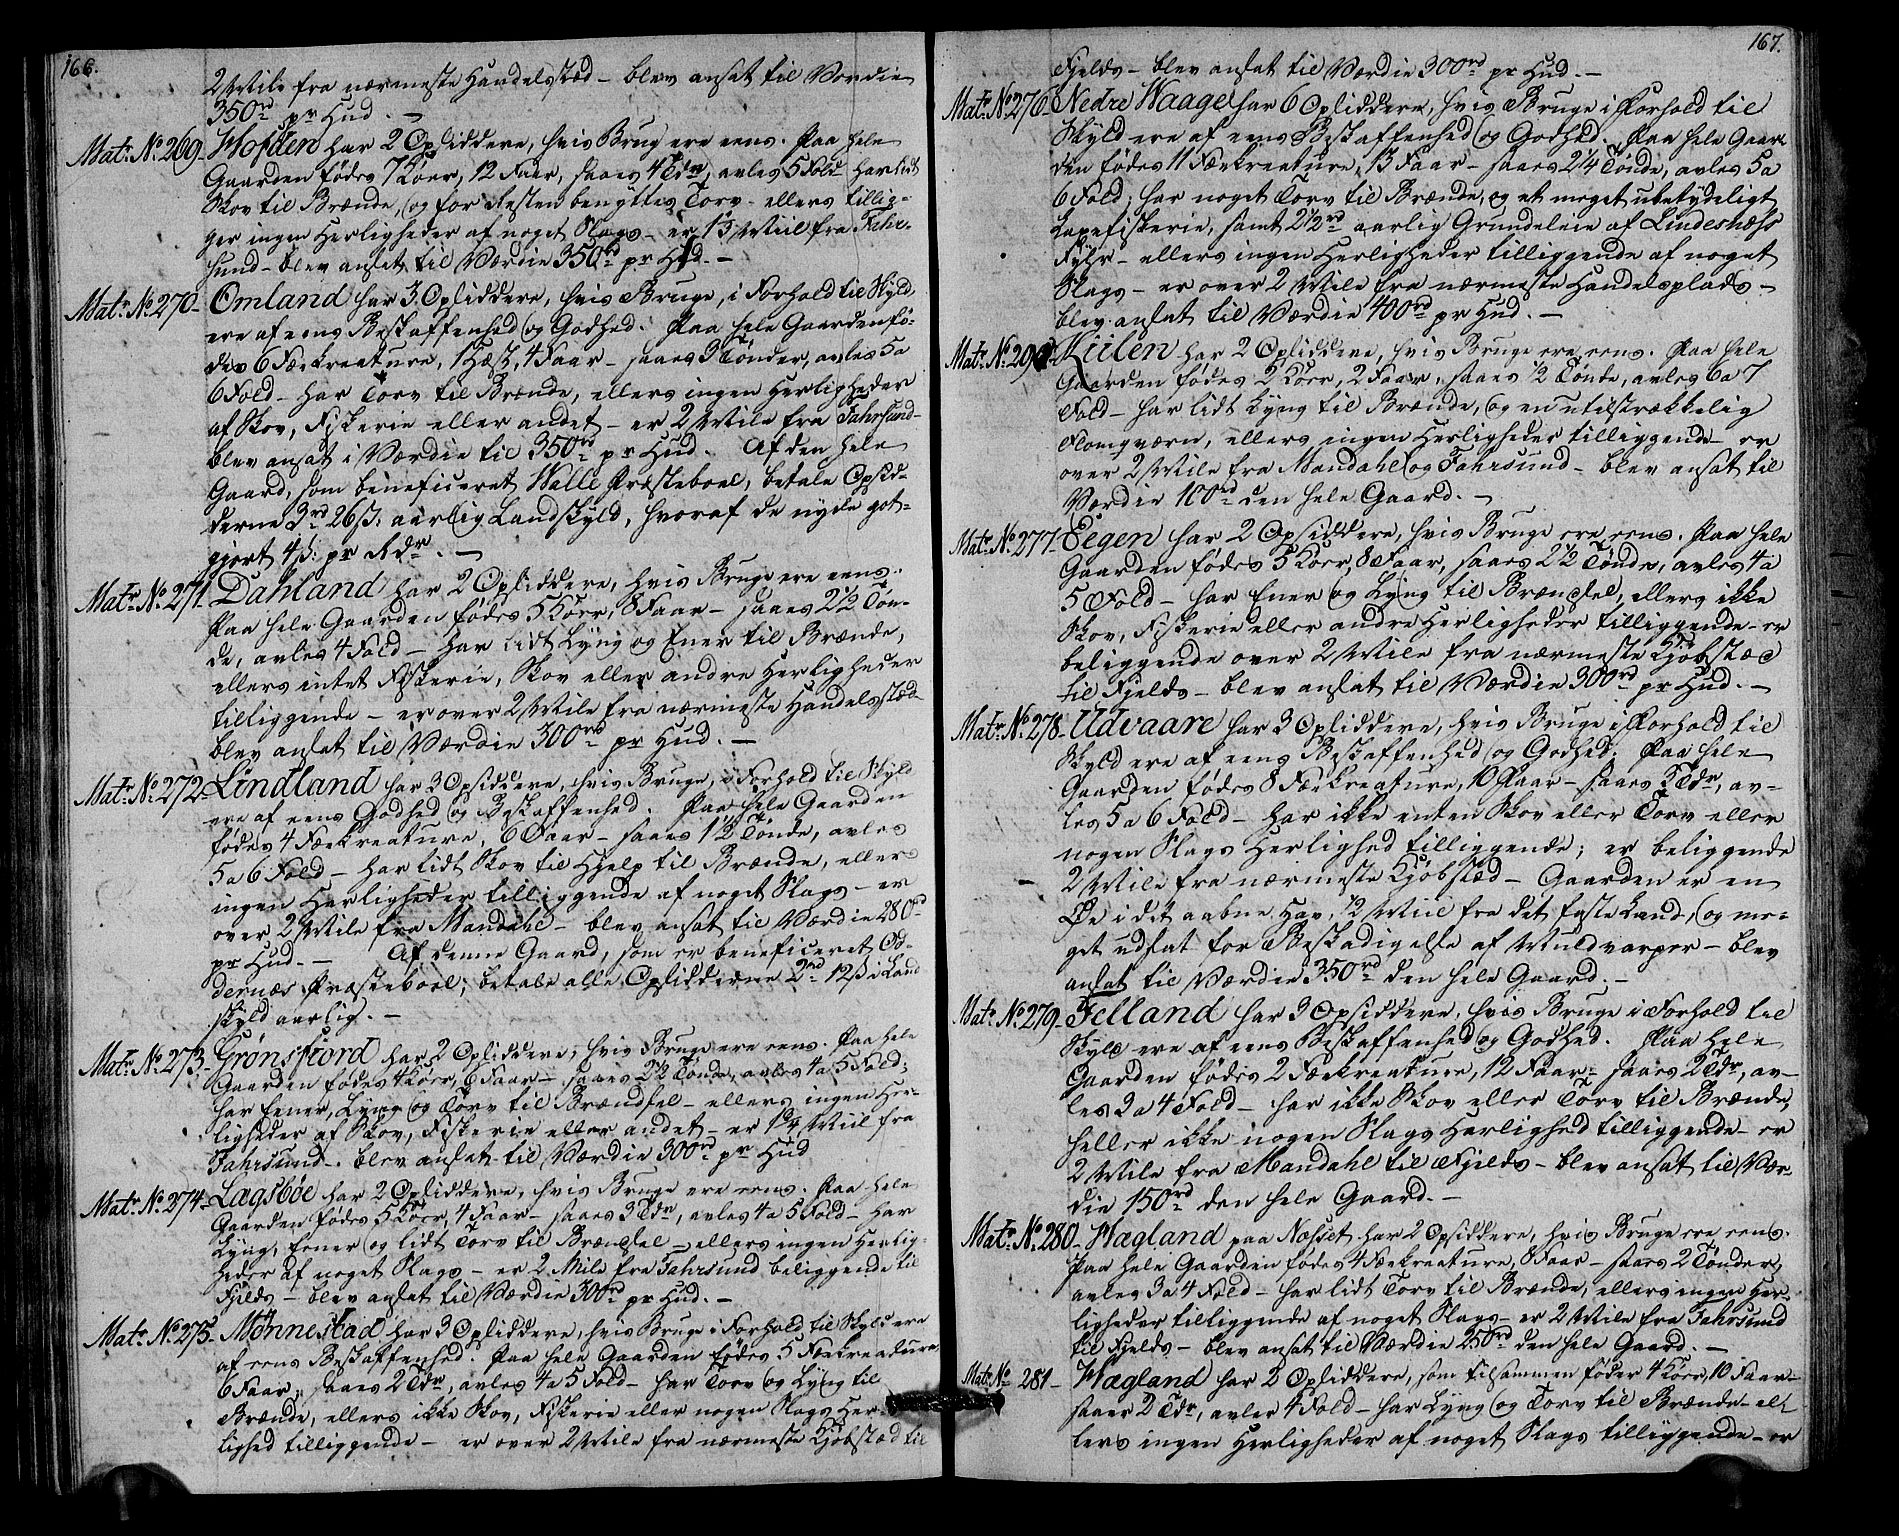 166.
2 Mile fra nærmeste Handelsstæd – blev ansat til Værdie
350rd pr Hud. –
Matr. No. 269 – Hofden har 2 Opsiddere, hvis Brug ere eens. Paa hele
Gaarden fødes 7 Køer, 12 Faar, saaes 4 Tdr, avles 5 Fold har lidt
Skov til Brænde, og for Resten benyttes Torv – ellers tillig-
ger ingen Herligheder af noget Slags – er 1 3/4 Miil fra Fahr-
sund – blev ansat til Værdie 350rd pr Hud. –
Matr. No. 270 – Omland har 3 Opsiddere, hvis Bruge, i Forhold til Skyld,
ere af eens Beskaffenhed og Godhed. Paa hele Gaarden fø-
des 6 Fækreature, 1 Hæst, 4 Faar – saaes 3 Tønder, avles 5 a
6 Fold – har Torv til Brænde, ellers ingen Herligheder
af Skov, Fiskerie eller andet – er 2 Mile fra Fahrsund –
blev ansat i Værdie til 350rd pr Hud. Af den hele
Gaard, som beneficeret Walle Præsteboel, betale Opsid-
derne 3rd 26 s. aarlig Landskyld, hvoraf de nyde got-
gjort 4 s. pr Rdr. –
Matr. No. 271 – Dahland har 2 Opsiddere, hvis Bruge ere eens.
Paa hele Gaarden fødes 5 Køer, 8 Faar – saaes 2 1/2 Tøn-
de, avles 4 Fold – har lidt Lyng og Ener til Brænde,
ellers intet Fiskerie, Skov eller andre Herligheder
tilliggende – er over 2 Mile fra nærmeste Handelsstæd
blev ansat til Værdie 300rd pr Hud. –
Matr. No. 272 – Lindland har 3 Opsiddere, hvis Bruge, i Forhold til Skyld
ere af eens Godhed og Beskaffenhed. Paa hele Gaarden
fødes 4 Fækreature, 6 Faar – saaes 1 1/2 Tønde, avles
5 a 6 Fold – har lidt Skov til Hjelp til Brænde, ellers
ingen Herligheder tilliggende af noget Slags – er
over 2 Mile fra Mandahl – blev ansat til Værdie 280rd
pr Hud. – Af denne Gaard, som er beneficeret Od-
dernæs Præsteboel, betale alle Opsidderne 2rd 12 s i Land
skyld aarlig. –
Matr. No. 273 – Grønsfiord har 2 Opsiddere, hvis Bruge ere eens. Paa hele
Gaarden fødes 4 Køer, 6 Faar – saaes 2 1/2 Tønde, avles 4 a 5 Fold;
har Ener, Lyng og Torv til Brændsel – ellers ingen Her-
ligheder af Skov, Fiskerie eller andet – er 1 3/4 Miil fra
Fahrsund – blev ansat til Værdie 300rd pr Hud
Matr. No. 274 – Lægsbøe har 2 Opsiddere, hvis Bruge ere eens. Paa hele
Gaarden fødes 5 Køer, 4 Faar – saaes 3 Tdr, avles 4 a 5 Fold – har
Lyng, Ener og lidt Torv til Brændsel – ellers ingen Herlig-
heder af noget Slags – er 2 Mile fra Fahrsund beliggende til
Fjelds – blev ansat til Værdie 300rd pr Hud. –
Matr. No. 275. Mønnestad har 3 Opsiddere, hvis Bruge i Forhold til Skyld ere
af eens Beskaffenhed. Paa hele Gaarden fødes 5 Fækreature,
6 Faar, saaes 2 Tdr, avles 4 a 5 Fold – har Torv og Lyng til
Brænde, ellers ikke Skov, Fiskerie eller nogen Slags Her-
lighed tilliggende – er over 2 Mile fra nærmeste Kjøbstæd til
167.
Fjelds – blev ansat til Værdie 300rd pr Hud. –
Matr. No. 276 – Nedre Waage har 6 Opsiddere, hvis Bruge i Forhold til
Skyld ere af eens Beskaffenhed og Godhed. Paa hele Gaar-
den fødes 11 Fækreature, 13 Faar – saaes 2 1/4 Tønde, avles 5 a
6 Fold; har noget Torv til Brænde, og et meget ubetydeligt
Laxefiskerie, samt 2 1/2rd aarlig Grundeleie af Lindesnæss
Fyhr – ellers ingen Herligheder tilliggende af noget
Slags – er over 2 Mile fra nærmeste Handelsplads –
blev ansat til Værdie 400rd pr Hud. –
Matr. No. 29 – Kiilen har 2 Opsiddere, hvis Bruge ere eens. Paa hele
Gaarden fødes 2 Køer, 2 Faar, saaes 1/2 Tønde, avles 6 a 7
Fold – har lidt Lyng til Brænde, og en utilstrækkelig
Flomqværn, ellers ingen Herligheder tilliggende – er
over 2 Mile fra Mandahl og Fahrsund – blev ansat til
Værdie 100rd den hele Gaard. –
Matr. No. 277 – Eegen har 2 Opsiddere, hvis Bruge ere eens. Paa hele
Gaarden fødes 5 Køer, 8 Faar, saaes 2 1/2 Tønde, avles 4 a
5 Fold – har Ener og Lyng til Brændsel, ellers ikke
Skov, Fiskerie eller andre Herligheder tilliggende – er
beliggende over 2 Mile fra nærmeste Kjøbstæd
til Fjelds – blev ansat til Værdie 300rd pr Hud. –
Matr. No. 278 – Udvaare har 3 Opsiddere, hvis Bruge i Forhold til
Skyld ere af eens Beskaffenhed og Godhed. Paa hele
Gaarden fødes 8 Fækreature, 10 Faar – saaes 3 Tdr, av-
les 5 a 6 Fold – har ikke enten Skov eller Torv eller
nogen Slags Herlighed tilliggende; er beliggende
2 Mile fra nærmeste Kjøbstæd – Gaarden er en
Øe i det aabne Hav, 1/2 Miil fra det faste Land, og me-
get udsat for Beskadigelse af Muldvarper – blev
ansat til Værdie 350rd den hele Gaard. –
Matr. No. 279 – Felland har 3 Opsiddere, hvis Bruge i Forhold til
Skyld ere af eens Beskaffenhed og Godhed. Paa hele
Gaarden fødes 2 Fækreature, 12 Faar – saaes 2 Tdr, av-
les 3 a 4 Fold – har ikke Skov eller Torv til Brænde,
heller ikke nogen Slags Herlighed tilliggende – er
2 Mile fra Mandahl til Fjelds – blev ansat til Vær-
die 150rd den hele Gaard. –
Matr. No. 280 – Hægland paa Næsset har 2 Opsiddere, hvis Bruge ere eens.
Paa hele Gaarden fødes 4 Fækreature, 8 Faar – saaes 2 Tønder,
avles 3 a 4 Fold – har lidt Torv til Brænde, ellers ingen Her-
ligheder tilliggende af noget Slags – er 2 Mile fra Fahrsund
til Fjelds – blev ansat til Værdie 250rd den hele Gaard. –
Matr. No 281 – Hægland har 2 Opsiddere, som tilsammen føder 4 Køer, 10 Faar –
saaer 2 Tdr, avler 4 Fold – har Lyng og Torv til Brænde – el-
lers ingen Herligheder af noget Slags tilliggende – er